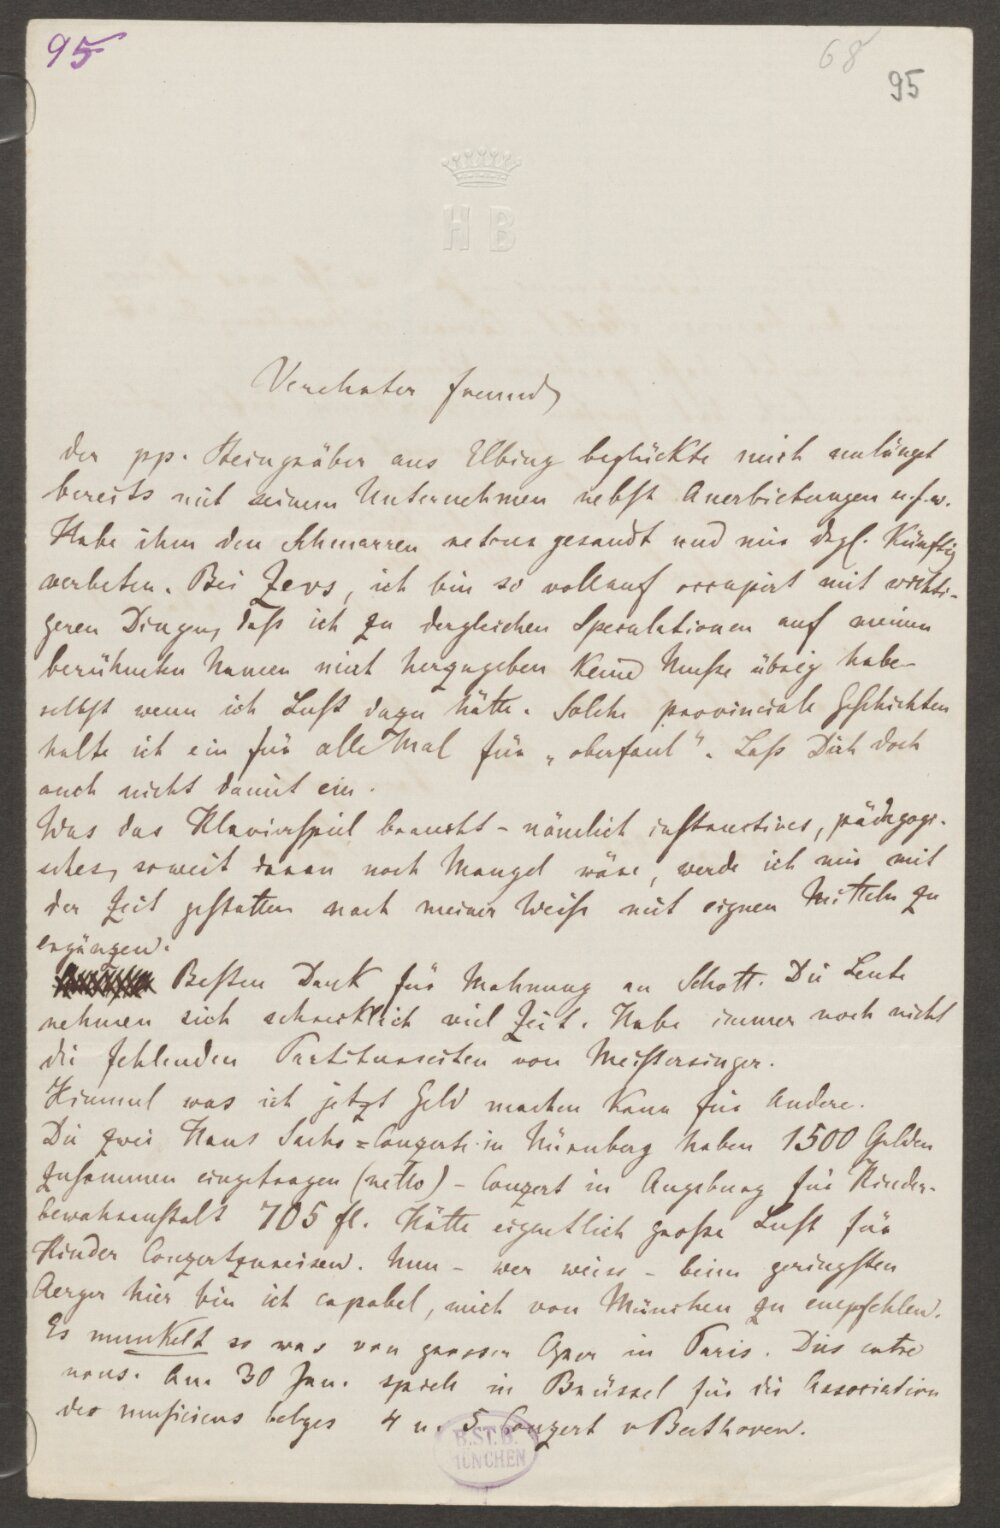 95
68
95
H B
Verehrter Freund,
der pp. Steingräber aus Elbing beglückte mich unlängst
bereits mit seinem Unternehmen nebst Anerbietungen u.s.w.
Habe ihm den Schmarren retour gesandt und mir dgl. künftig
verbeten. Bei Zevs, ich bin so vollauf occupirt mit wichti-
geren Dingen, daß ich zu dergleichen Speculationen auf meinen
berühmten Namen mich herzugeben keine Muße übrig habe –
selbst wenn ich Lust dazu hätte. Solche provinciale Geschichten
halte ich ein für alle Mal für „oberfaul“. Laß Dich doch
auch nicht damit ein.
Was das Klavierspiel braucht – nämlich instructives, pädagogi-
sches, soweit daran noch Mangel wäre, werde ich mir mit
der Zeit gestatten nach meiner Weise mit eignen Mitteln zu
ergänzen.
Besten Dank für Mahnung an Schott. Die Leute
nehmen sich schrecklich viel Zeit. Habe immer noch nicht
die fehlenden Partiturseiten von Meistersinger.
Himmel was ich jetzt Geld machen kann für Andere.
Die zwei Hans Sachs=Conzerte in Nürnberg haben 1500 Gulden
zusammen eingetragen (netto) – Conzert in Augsburg für Kinder-
bewahranstalt 705 fl. Hätte eigentlich große Lust für
Kinder Conzertzureisen. Nun – wer weiss – beim geringsten
Aerger hier bin ich capabel, mich von München zu empfehlen.
Es munkelt so was von grosser Oper in Paris. Dies entre
nous. Am 30 Jan. spiele in Brüssel für die Association
des musiciens belges 4 u. 5 Conzert v Beethoven.
B.ST.B.
MÜNCHEN